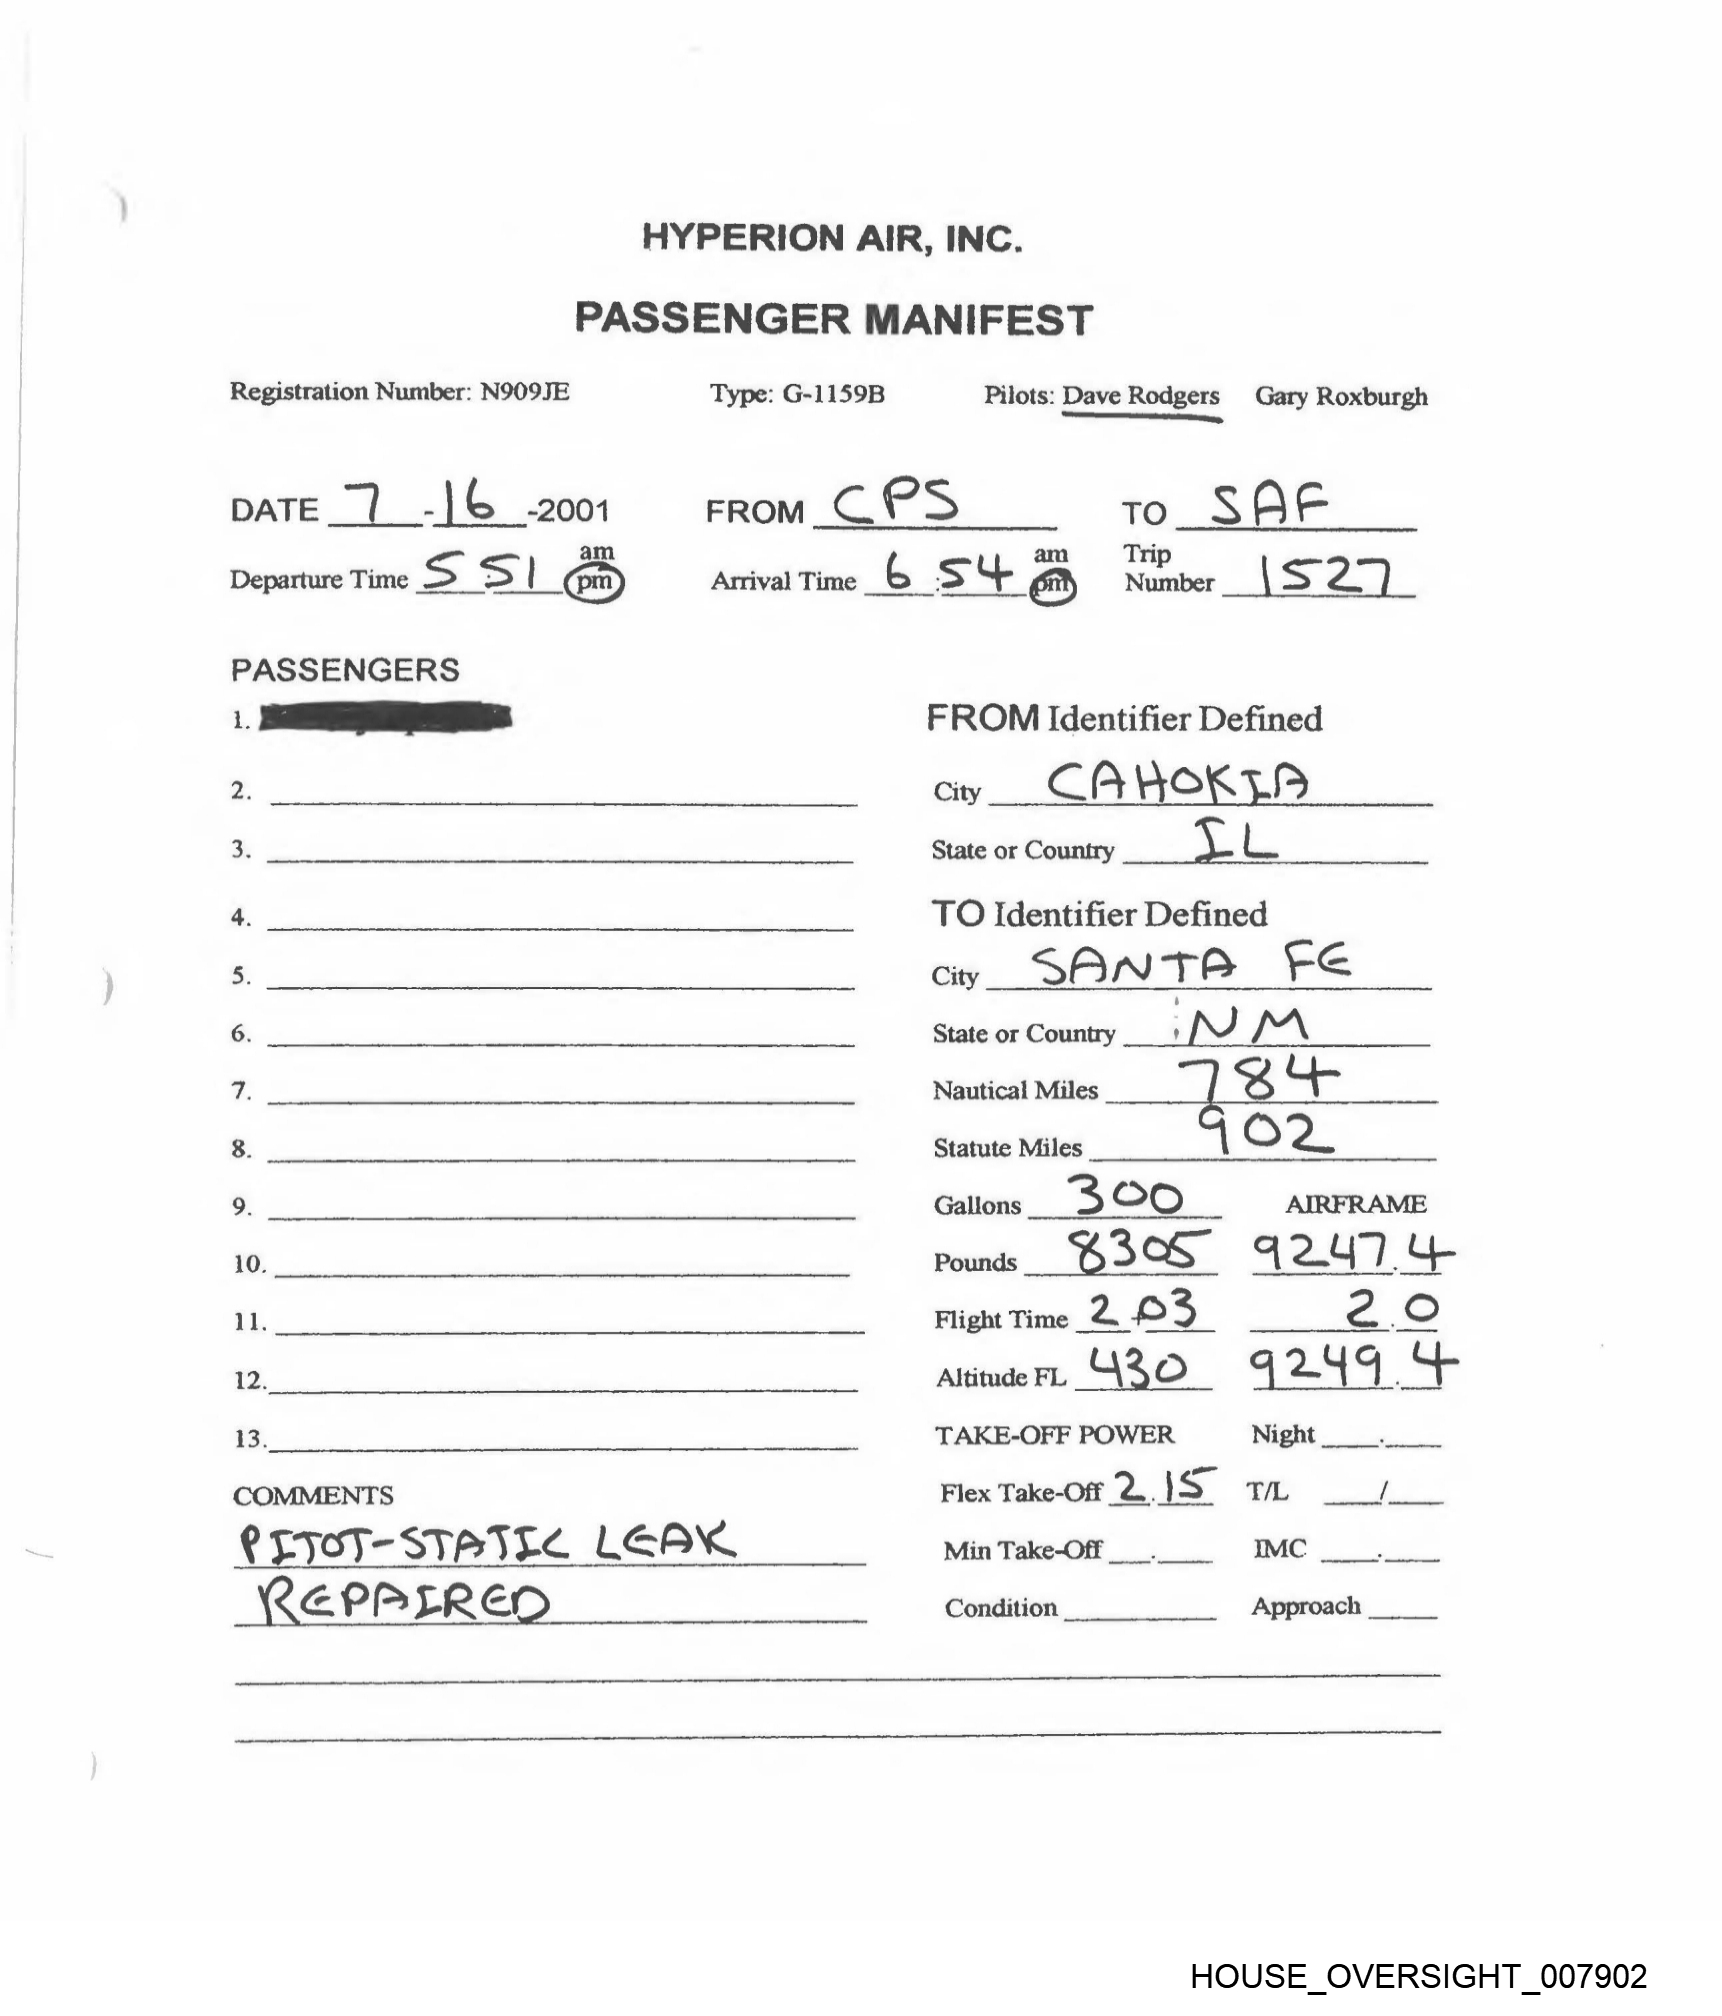 HYPERION AIR, INC.
PASSENGER MANIFEST
Registration Number: N909JE Type: G-1159B Pilots: Dave Rodgers Gary Roxburgh
DATE 7 - 16 -2001 FROM CPS TO SAF
Departure Time 5:51 am pm Arrival Time 6:54 am pm Trip Number 1527
PASSENGERS
1.
FROM Identifier Defined
2.
City CAHOKIA
3.
State or Country IL
4.
TO Identifier Defined
5.
City SANTA FE
6.
State or Country NM
7.
Nautical Miles 784
8.
Statute Miles 902
9.
Gallons 300 AIRFRAME
10.
Pounds 8305 9247.4
11.
Flight Time 2+03 2.0
12.
Altitude FL 430 9249.4
13.
TAKE-OFF POWER Night .
COMMENTS
Flex Take-Off 2.15 T/L /
PITOT-STATIC LEAK
Min Take-Off . IMC .
REPAIRED
Condition Approach
HOUSE_OVERSIGHT_007902